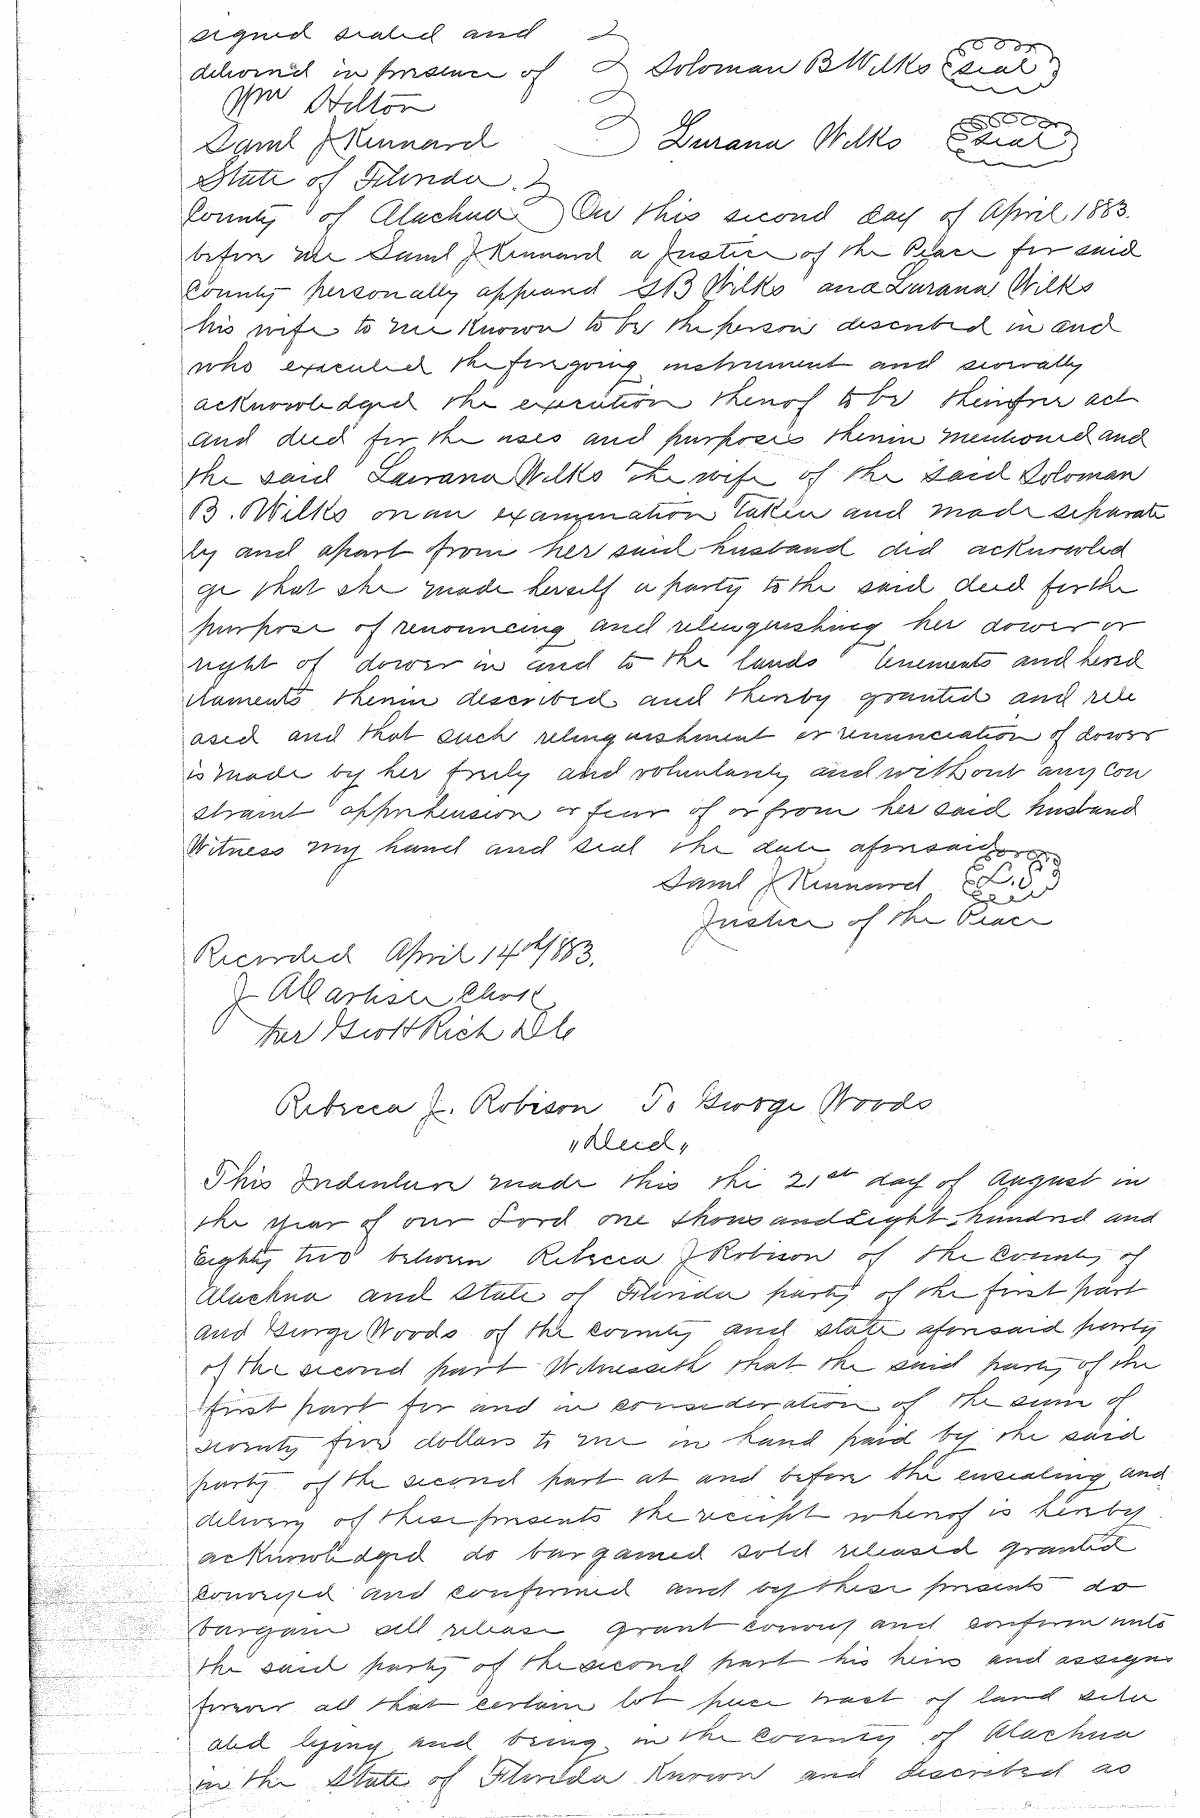 signed sealed and
delivered in presence of Soloman B Wilks seal
Wm Hilton
Saml J Kennard Lurana Wilks seal
State of Florida
County of Alachua On this second day of April 1883.
before me Saml J Kennard a Justice of the Peace for said
County personally appeard S B Wilks and Lurana Wilks
his wife to me known to be the person described in and
who executed the foregoing instrument and severally
acknowledged the execution thereof to be their free act
and deed for the uses and purposes therein mentioned and
the said Laurana Wilks the wife of the said Soloman
B. Wilks on an examination taken and made separate
ly and apart from her said husband did acknowled
ge that she made herself a party to the said deed for the
purpose of renouncing and relinquishing her dower or
right of dower in and to the lands tenements and hered
itaments therein described and thereby granted and rele
ased and that such relinquishment or renunciation of dower
is made by her freely and voluntarily and without any con
straint apprehension or fear of or from her said husband
Witness my hand and seal the date aforesaid
Saml J Kennard L.S
Justice of the Peace
Recorded April 14th 1883.
J A Carlisle Clerk
Per Scott Rich D C
Rebecca J. Robison To George Woods
"Deed"
This Indenture made this the 21st day of August in
the year of our Lord one thousand Eight hundred and
Eighty two between Rebecca J Robison of the County of
Alachua and State of Florida party of the first part
and George Woods of the county and state aforesaid party
of the second part Witnesseth that the said party of the
first part for and in consideration of the sum of
seventy five dollars to me in hand paid by the said
party of the second part at and before the ensealing and
delivery of these presents the receipt whereof is hereby
acknowledged do bargained sold released granted
conveyed and confirmed and by these presents do
bargain sell release grant convey and confirm unto
the said party of the second part his heirs and assigns
forever all that certain lot piece tract of land situ
ated lying and being in the county of Alachua
in the State of Florida Known and described as